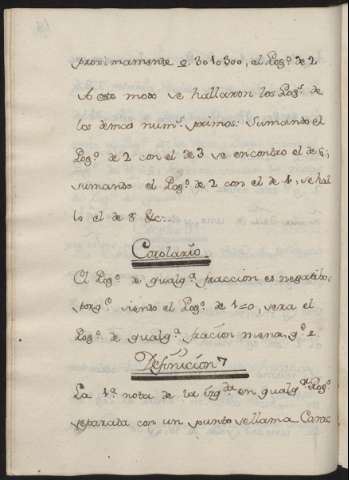 proximamente 0. 3010300, el Log.º de 2
A este modo se hallaron los Log.s de
los demas num.s primos: Sumando el
Log.º de 2 con el de 3 se encontro el de 6,
sumando el Log.º de 2 con el de 4, se ha
lló el de 8 &c.
Corolario
El Log.º de qualq.ª fraccion es negatibo,
porq.e siendo el Log.º de 1=0, sera el
Log.º de qualq.ª fracion menor q.e
Definicion 7
La 1.ª nota de la izq.da en qualq.r Log.º
separada con un punto se llama Carac